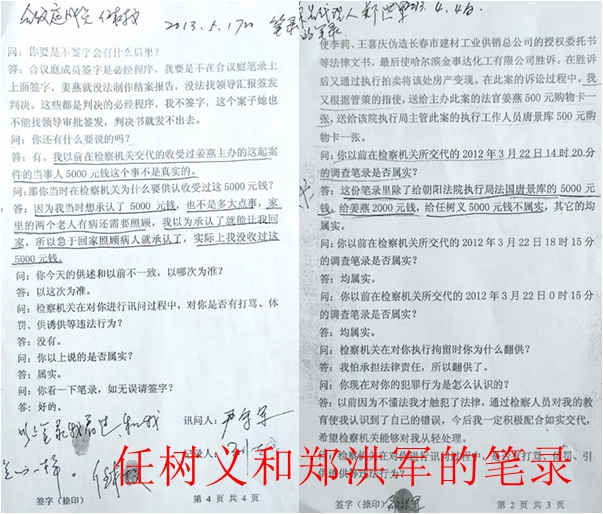 合议庭成员 任树义
2013.5.17
问：你要是不签字会有什么后果？
答：合议庭成员签字是必经程序，我要是不在合议庭笔录上
上面签字，姜燕就没法制作结案报告，没法找领导汇报签发
判决。这些都是判决的必经程序，我不签字，这个案子她也
不能找领导审批签发，判决书就发不出去。
问：你还有什么要说的吗？
答：有。我以前在检察机关交代的收受过姜燕主办的这起案
件的当事人5000元钱这个事不是真实的。
问：那你当时在检察机关为什么要供认收受过这5000元钱？
答：因为我当时想承认了5000元钱，也不是多大点事，家
里的两个老人有病还需要照顾，我以为承认了就能让我回
家，所以急于回家照顾病人就承认了，实际上我没收过这
5000元钱。
问：你今天的供述和以前不一致，以哪次为准？
答：以这次为准。
问：检察机关在对你进行讯问过程中，对你是否有打骂、体
罚、供诱供等违法行为？
答：没有。
问：你以上说的是否属实？
答：属实。
问：你看一下笔录，如无误请签字？
答：好的。
讯问人：
记录人：
签字（捺印）
第 4 页 共 4 页
郑洪军
2013.4.4
的笔录
使李莉、王喜庆伪造长春市建材工业供销总公司的授权委托书
等法律文书，最后使哈尔滨金事达化工有限公司胜诉。在胜诉
后又通过执行拍卖将该处房产变现。在此案的诉讼过程中，我
又根据管策的指使，送给主办此案的法官姜燕500元购物卡
一张，送给该院执行局主管此案的执行工作人员唐景库500元购
物卡一张。
问：你以前在检察机关所交代的2012年3月22日14时20分
的调查笔录是否属实？
答：这份笔录里除了给朝阳法院执行局法国唐景库的5000元
钱，给姜燕2000元钱，给任树义5000元钱不属实，其它的均
属实。
问：你以前在检察机关所交代的2012年3月22日18时15分
的调查笔录是否属实？
答：均属实。
问：你以前在检察机关所交代的2012年3月22日0时15分
的调查笔录是否属实？
答：均属实。
问：检察机关在对你执行拘留时你为什么翻供？
答：我怕承担法律责任，所以翻供了。
问：你现在对你的犯罪行为是怎么认识的？
答：以前因为不懂法我才触犯了法律，通过检察人员对我的教
育使我认识到了自己的错误，今后我一定积极配合如实交代，
希望检察机关能够对我从轻处理。
签字（捺印）
第 2 页 共 3 页
任树义和郑洪军的笔录